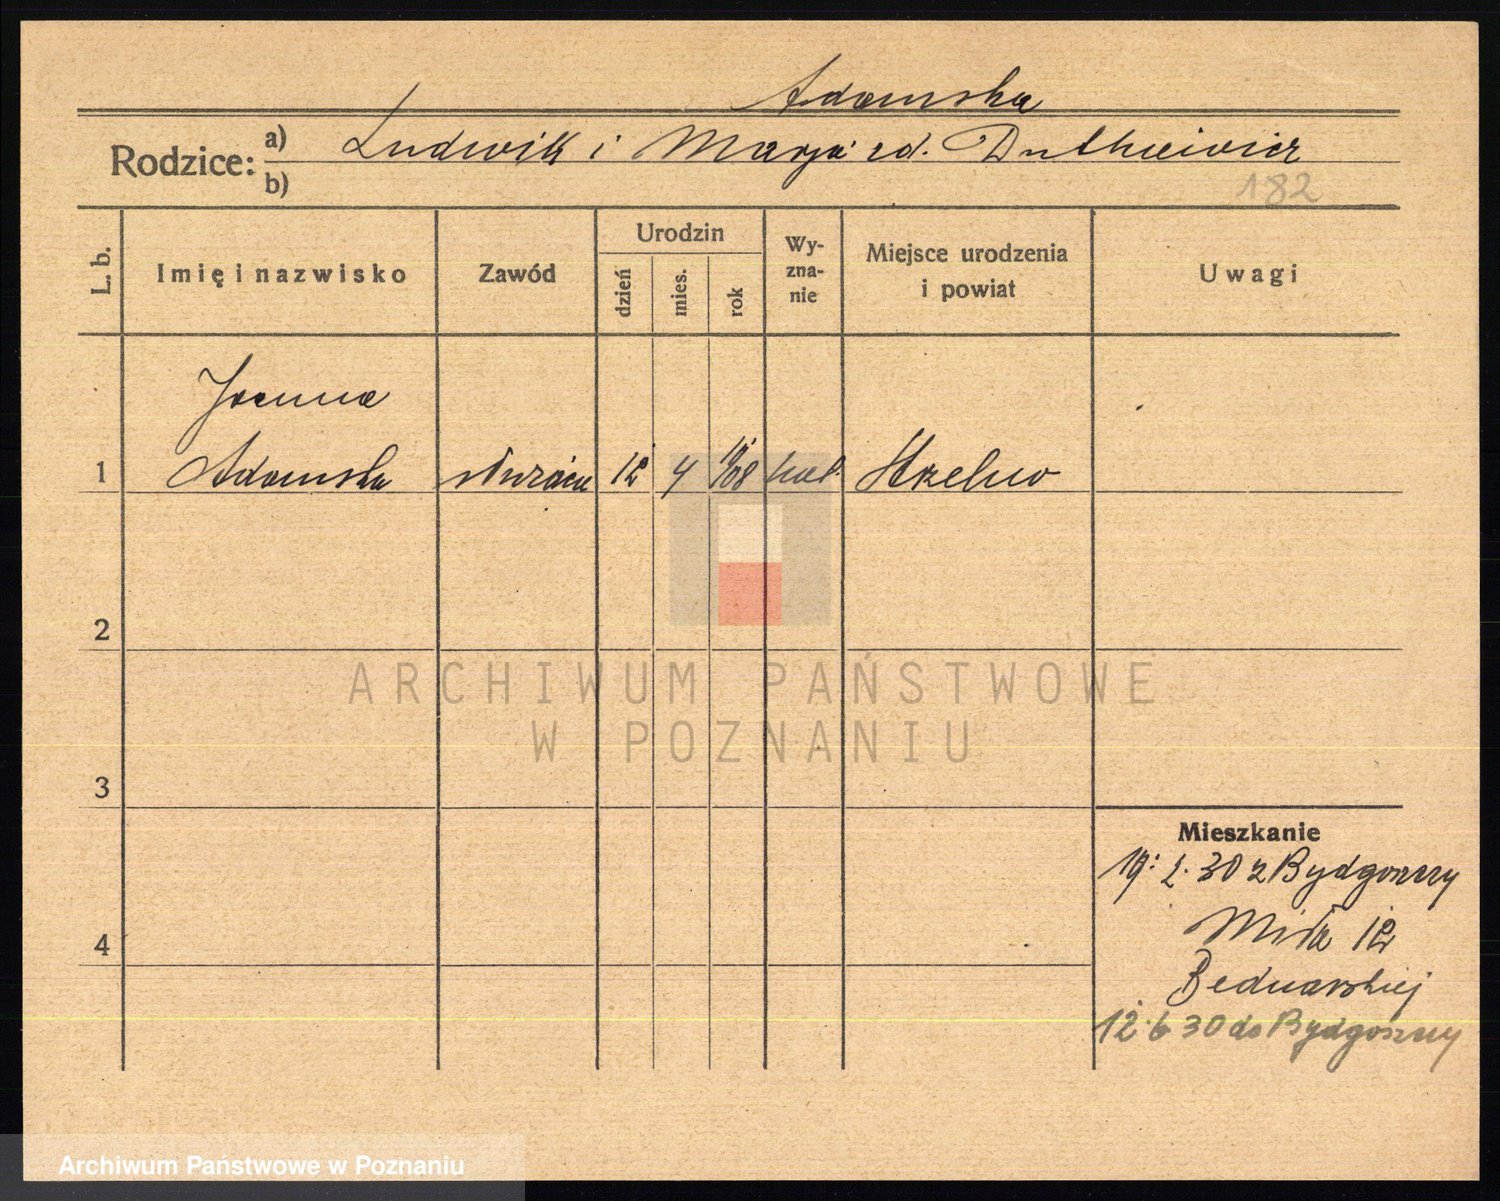 Adamska
Rodzice: a) Ludwik i Marja zd. Dutkiewicz
b)
182
L. b.
Imię i nazwisko
Zawód
Urodzin
dzień
mies.
rok
Wy-
zna-
nie
Miejsce urodzenia
i powiat
Uwagi
Joanna
1 Adamska służąca 12 4 1908 kat. Strzelno
2
3
4
Mieszkanie
19. 2. 30 z Bydgoszczy
Miła 12
Bednarskiej
12 6 30 do Bydgoszczy
ARCHIWUM PAŃSTWOWE
W POZNANIU
Archiwum Państwowe w Poznaniu